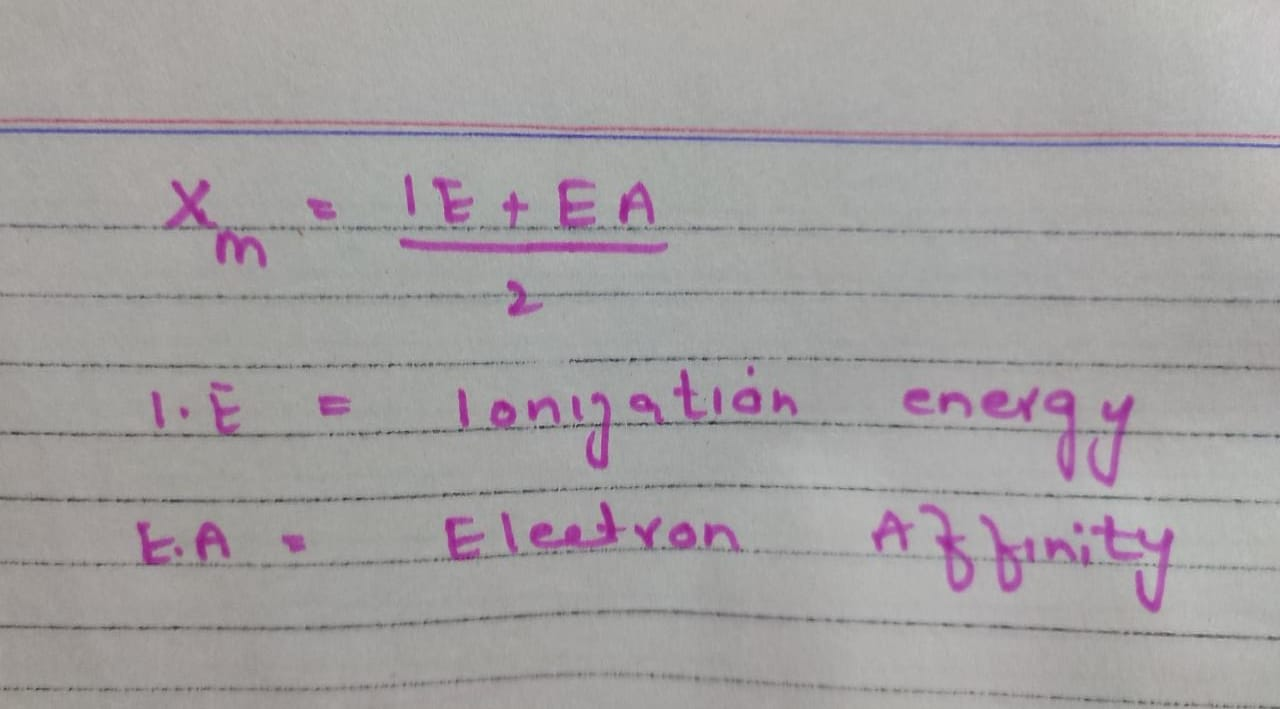 X_m = IE + EA
2
I.E = Ionization energy
E.A = Electron Affinity